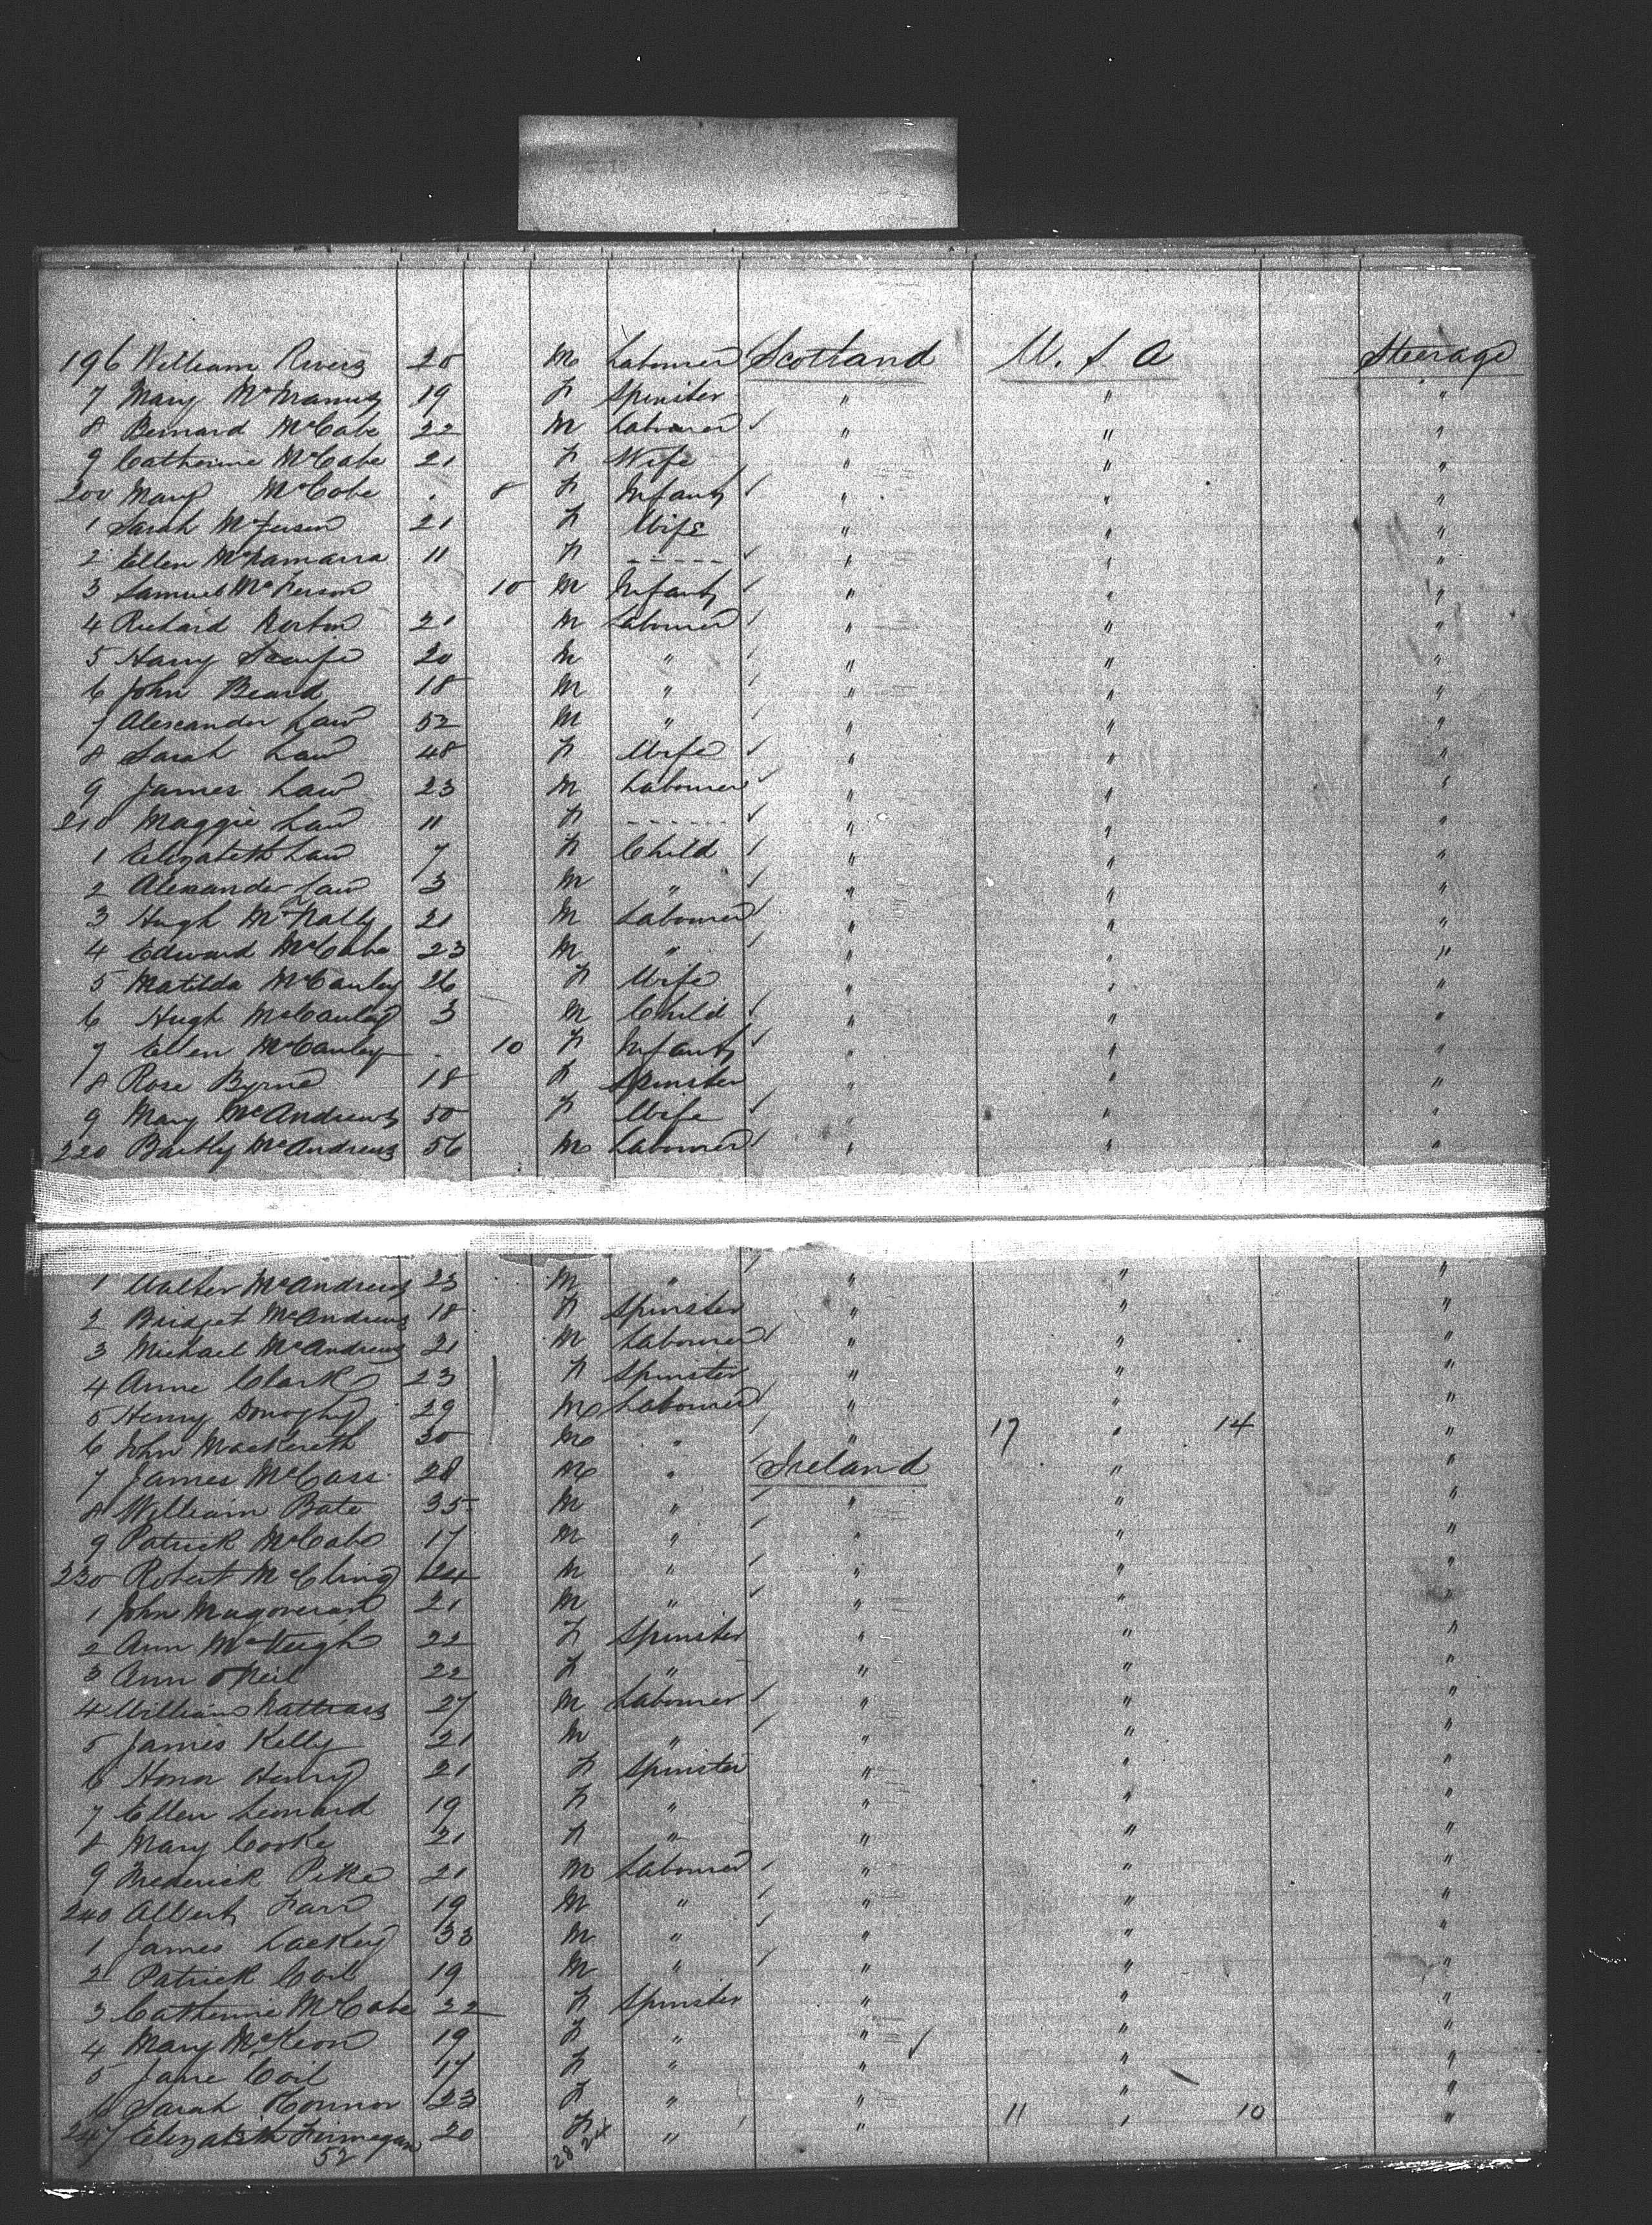 196 William Rivers 20 M Labourer Scotland U. S. A Steerage
7 Mary McManus 19 F Spinster " " "
8 Bernard McCabe 22 M Labourer " " "
9 Catherine McCabe 21 F Wife " " "
200 Mary McCabe . 8 F Infant " " "
1 Sarah 21 F Wife " " "
2 Ellen McNamara 11 F ------ " " "
3 Samuel 10 M Infant " " "
4 Richard Norton 21 M Labourer " " "
5 Harry Scarfe 20 M " " " "
6 John Beard 18 M " " " "
7 Alexander Law 52 M " " " "
8 Sarah Law 48 F Wife " " "
9 James Law 23 M Labourer " " "
210 Maggie Law 11 F ------ " " "
1 Elizabeth Law 7 F Child " " "
2 Alexander Law 3 M " " " "
3 Hugh McNally 21 M Labourer " " "
4 Edward McCabe 23 M " " " "
5 Matilda McCauley 26 F Wife " " "
6 Hugh McCauley 3 M Child " " "
7 Ellen McCauley . 10 F Infant " " "
8 Rose Byrne 18 F Spinster " " "
9 Mary McAndrews 50 F Wife " " "
220 Bartly McAndrews 56 M Labourer " " "
1 Walter McAndrews 23 M " " " "
2 Bridget McAndrews 18 F Spinster " " "
3 Michael McAndrews 21 M Labourer " " "
4 Anne Clark 23 F Spinster " " "
5 Henry Donoghy 29 M Labourer " " "
6 John Mackereth 30 M " " 17 " 14 "
7 James McCass 28 M " Ireland " "
8 William Bate 35 M " " " "
9 Patrick McCabe 17 M " " " "
230 Robert McCling 24 M " " " "
1 John Magoveran 21 M " " " "
2 Ann McVeigh 22 F Spinster " " "
3 Ann O'Neil 22 F " " " "
4 William Nattrass 27 M Labourer " " "
5 James Kelly 21 M " " " "
6 Honor Henry 21 F Spinster " " "
7 Ellen Leonard 19 F " " " "
8 Mary Cooke 21 F " " " "
9 Frederick Pike 21 M Labourer " " "
240 Albert Farr 19 M " " " "
1 James Lackey 33 M " " " "
2 Patrick Coil 19 M " " " "
3 Catherine McCabe 22 F Spinster " " "
4 Mary McKeon 19 F " " " "
5 Jane Coil 17 F " " " "
6 Sarah Connor 23 F " " " "
247 Elizabeth Finnegan 20 F " " 11 " 10 "
52 28 24